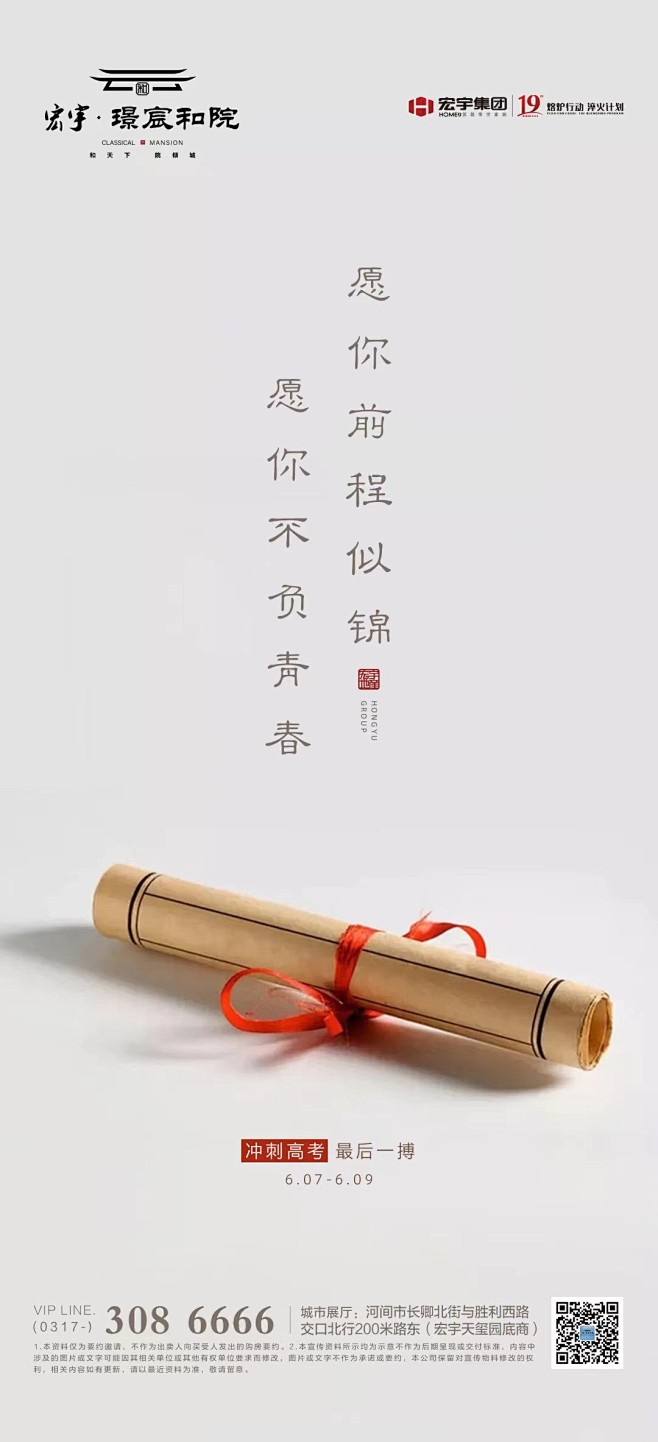 宏宇·璟宸和院
CLASSICAL MANSION
和天下 院倾城
宏宇集团
HOME9
19
熔炉行动 淬火计划
愿你前程似锦
愿你不负青春
HONGYU
GROUP
冲刺高考 最后一搏
6.07-6.09
VIP LINE.
(0317-)
308 6666
城市展厅：河间市长卿北街与胜利西路
交口北行200米路东（宏宇天玺园底商）
1.本资料仅为要约邀请，不作为出卖人向买受人发出的购房要约。2.本宣传资料所示均为示意不作为后期呈现或交付标准，内容中
涉及的图片或文字可能因其相关单位或其他有权单位要求而修改，图片或文字不作为承诺或要约，本公司保留对宣传物料修改的权
利，相关内容如有更新，请以最近资料为准，敬请留意。